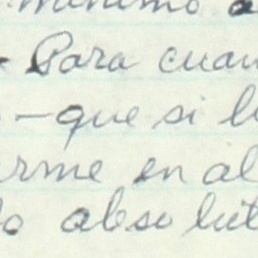 minimo a
- Para cuan
- que si l
rme en al
o absolut